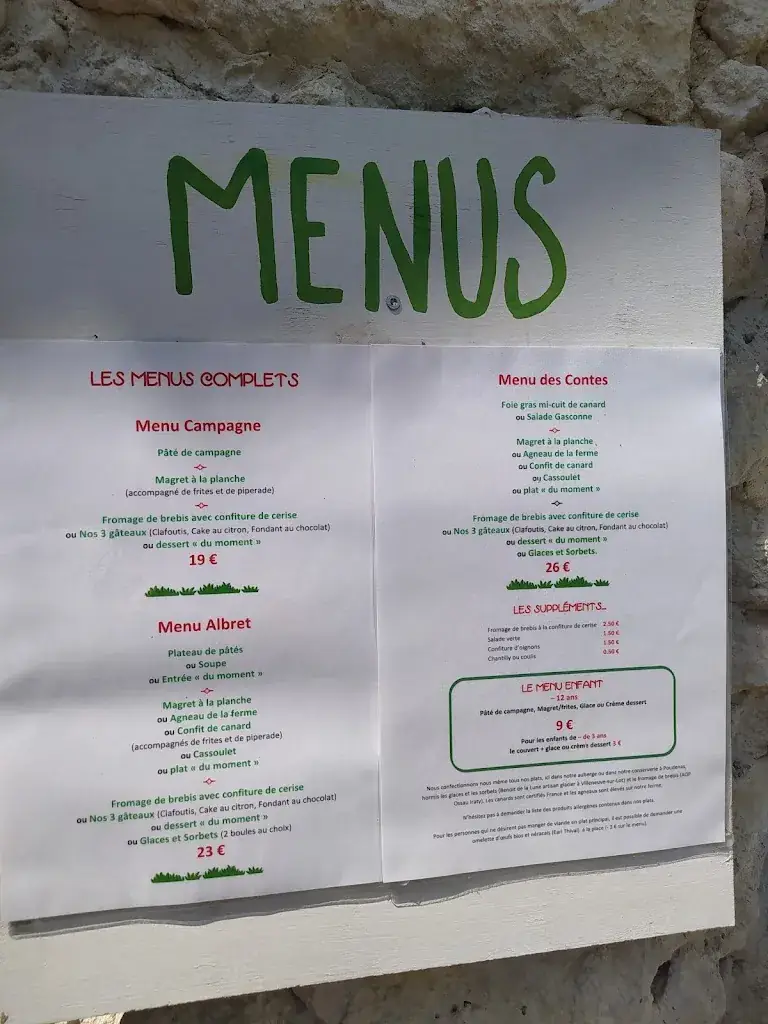 MENUS
LES MENUS COMPLETS
Menu Campagne
Pâté de campagne
Magret à la planche
(accompagné de frites et de piperade)
Fromage de brebis avec confiture de cerise
ou Nos 3 gâteaux (Clafoutis, Cake au citron, Fondant au chocolat)
ou dessert « du moment »
19 €
Menu Albret
Plateau de pâtés
ou Soupe
ou Entrée « du moment »
Magret à la planche
ou Agneau de la ferme
ou Confit de canard
(accompagnés de frites et de piperade)
ou Cassoulet
ou plat « du moment »
Fromage de brebis avec confiture de cerise
ou Nos 3 gâteaux (Clafoutis, Cake au citron, Fondant au chocolat)
ou dessert « du moment »
ou Glaces et Sorbets (2 boules au choix)
23 €
Menu des Contes
Foie gras mi-cuit de canard
ou Salade Gasconne
Magret à la planche
ou Agneau de la ferme
ou Confit de canard
ou Cassoulet
ou plat « du moment »
Fromage de brebis avec confiture de cerise
ou Nos 3 gâteaux (Clafoutis, Cake au citron, Fondant au chocolat)
ou dessert « du moment »
ou Glaces et Sorbets.
26 €
LES SUPPLÉMENTS...
Fromage de brebis à la confiture de cerise 2.50 €
Salade verte 1.50 €
Confiture d'oignons 1.50 €
Chantilly ou coulis 0.50 €
LE MENU ENFANT
– 12 ans
Pâté de campagne, Magret/frites, Glace ou Crème dessert
9 €
Pour les enfants de – de 3 ans
le couvert + glace ou crème dessert 3 €
Nous confectionnons nous même tous nos plats, ici dans notre auberge ou dans notre conserverie à Poudenas,
hormis les glaces et les sorbets (Benoit de la Lune artisan glacier à Villeneuve-sur-Lot) et le fromage de brebis (AOP
Ossau Iraty). Les canards sont certifiés France et les agneaux sont élevés sur notre ferme.
N'hésitez pas à demander la liste des produits allergènes contenus dans nos plats.
Pour les personnes qui ne désirent pas manger de viande en plat principal, il est possible de demander une
omelette d'œufs bios et néracais (Earl Thival), à la place (- 2 € sur le menu).